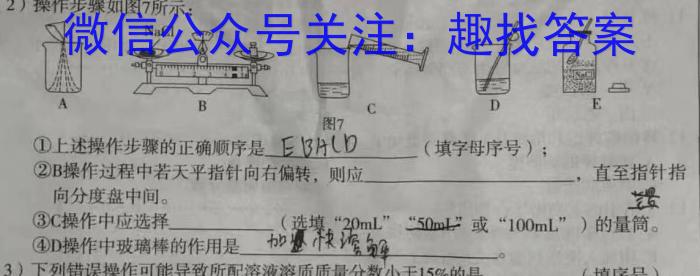 2）操作步骤如图7所示：
微信公众号关注：趣找答案
NaCl
A B C D E
图7
①上述操作步骤的正确顺序是 EBACD （填字母序号）；
②B操作过程中若天平指针向右偏转，则应，直至指针指
向分度盘中间。
③C操作中应选择（选填“20mL”“50mL”或“100mL”）的量筒。
④D操作中玻璃棒的作用是 加速溶解。
3）下列错误操作可能导致所配溶液溶质质量分数小于15%的是（填序号）